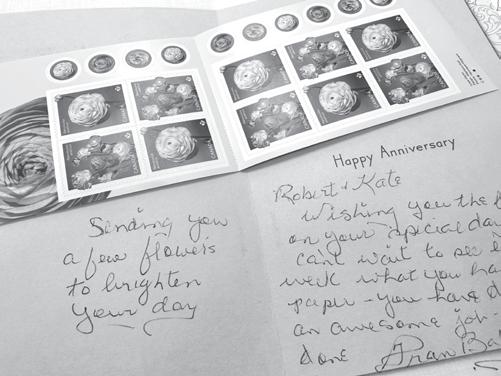 Happy Anniversary
Robert & Kate
Wishing you the
on your special day
can't wait to see
week what you ha
paper - you have d
an awesome job
done Fran Ba
Sending you
a few flowers
to brighten
your day